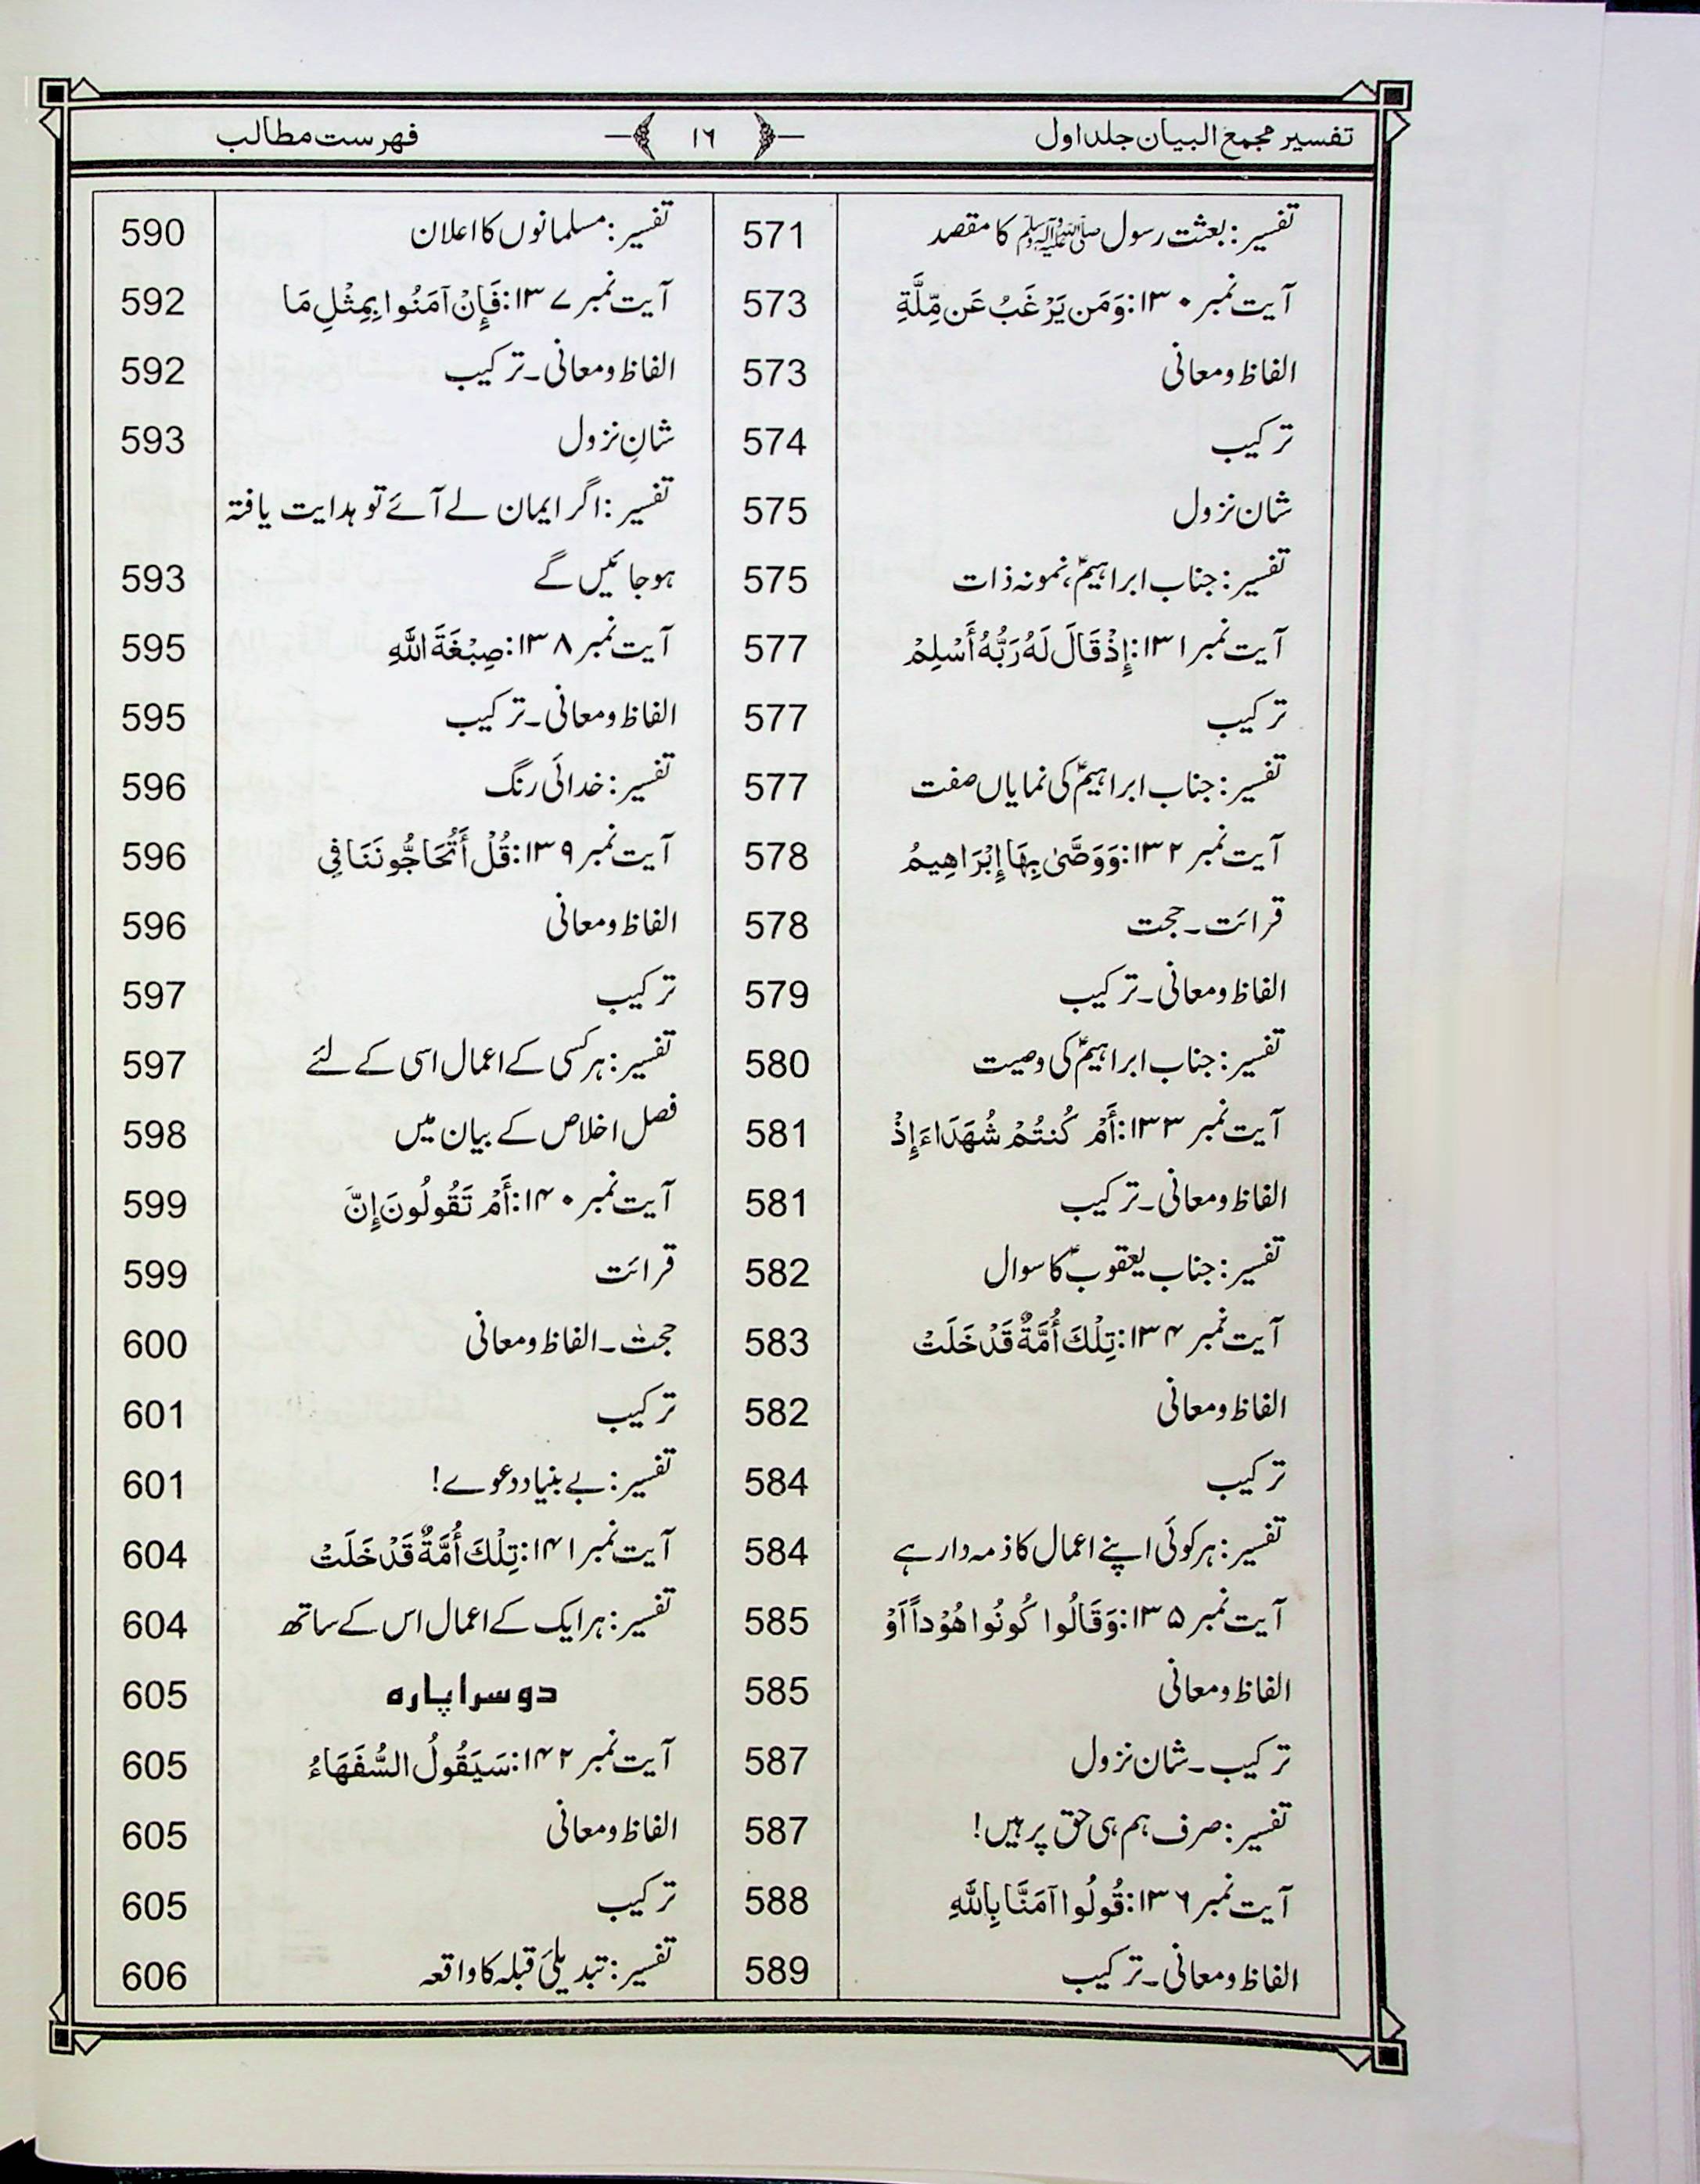 تفسیر مجمع البیان جلد اول ۱۶ فہرست مطالب
تفسیر: بعثت رسول ﷺ کا مقصد 571
آیت نمبر ۱۳۰: وَمَن يَرْغَبُ عَن مِّلَّةِ 573
الفاظ و معانی 573
ترکیب 574
شان نزول 575
تفسیر: جناب ابراہیمؑ، نمونہ ذات 575
آیت نمبر ۱۳۱: إِذْ قَالَ لَهُ رَبُّهُ أَسْلِمْ 577
ترکیب 577
تفسیر: جناب ابراہیمؑ کی نمایاں صفت 577
آیت نمبر ۱۳۲: وَوَصَّىٰ بِهَا إِبْرَاهِيمُ 578
قرائت۔ حجت 578
الفاظ و معانی۔ ترکیب 579
تفسیر: جناب ابراہیمؑ کی وصیت 580
آیت نمبر ۱۳۳: أَمْ كُنتُمْ شُهَدَاءَ إِذْ 581
الفاظ و معانی۔ ترکیب 581
تفسیر: جناب یعقوبؑ کا سوال 582
آیت نمبر ۱۳۴: تِلْكَ أُمَّةٌ قَدْ خَلَتْ 583
الفاظ و معانی 582
ترکیب 584
تفسیر: ہر کوئی اپنے اعمال کا ذمہ دار ہے 584
آیت نمبر ۱۳۵: وَقَالُوا كُونُوا هُوْداً اَوْ 585
الفاظ و معانی 585
ترکیب۔ شان نزول 587
تفسیر: صرف ہم ہی حق پر ہیں! 587
آیت نمبر ۱۳۶: قُولُوا آمَنَّا بِاللَّهِ 588
الفاظ و معانی۔ ترکیب 589
تفسیر: مسلمانوں کا اعلان 590
آیت نمبر ۱۳۷: فَإِنْ آمَنُوا بِمِثْلِ مَا 592
الفاظ و معانی۔ ترکیب 592
شانِ نزول 593
تفسیر: اگر ایمان لے آئے تو ہدایت یافتہ
ہو جائیں گے 593
آیت نمبر ۱۳۸: صِبْغَةَ اللَّهِ 595
الفاظ و معانی۔ ترکیب 595
تفسیر: خدائی رنگ 596
آیت نمبر ۱۳۹: قُلْ أَتُحَاجُّونَنَا فِي 596
الفاظ و معانی 596
ترکیب 597
تفسیر: ہر کسی کے اعمال اسی کے لئے 597
فصل اخلاص کے بیان میں 598
آیت نمبر ۱۴۰: أَمْ تَقُولُونَ إِنَّ 599
قرائت 599
حجت۔ الفاظ و معانی 600
ترکیب 601
تفسیر: بے بنیاد دعوے! 601
آیت نمبر ۱۴۱: تِلْكَ أُمَّةٌ قَدْ خَلَتْ 604
تفسیر: ہر ایک کے اعمال اس کے ساتھ 604
دوسرا پارہ 605
آیت نمبر ۱۴۲: سَيَقُولُ السُّفَهَاءُ 605
الفاظ و معانی 605
ترکیب 605
تفسیر: تبدیلیٔ قبلہ کا واقعہ 606